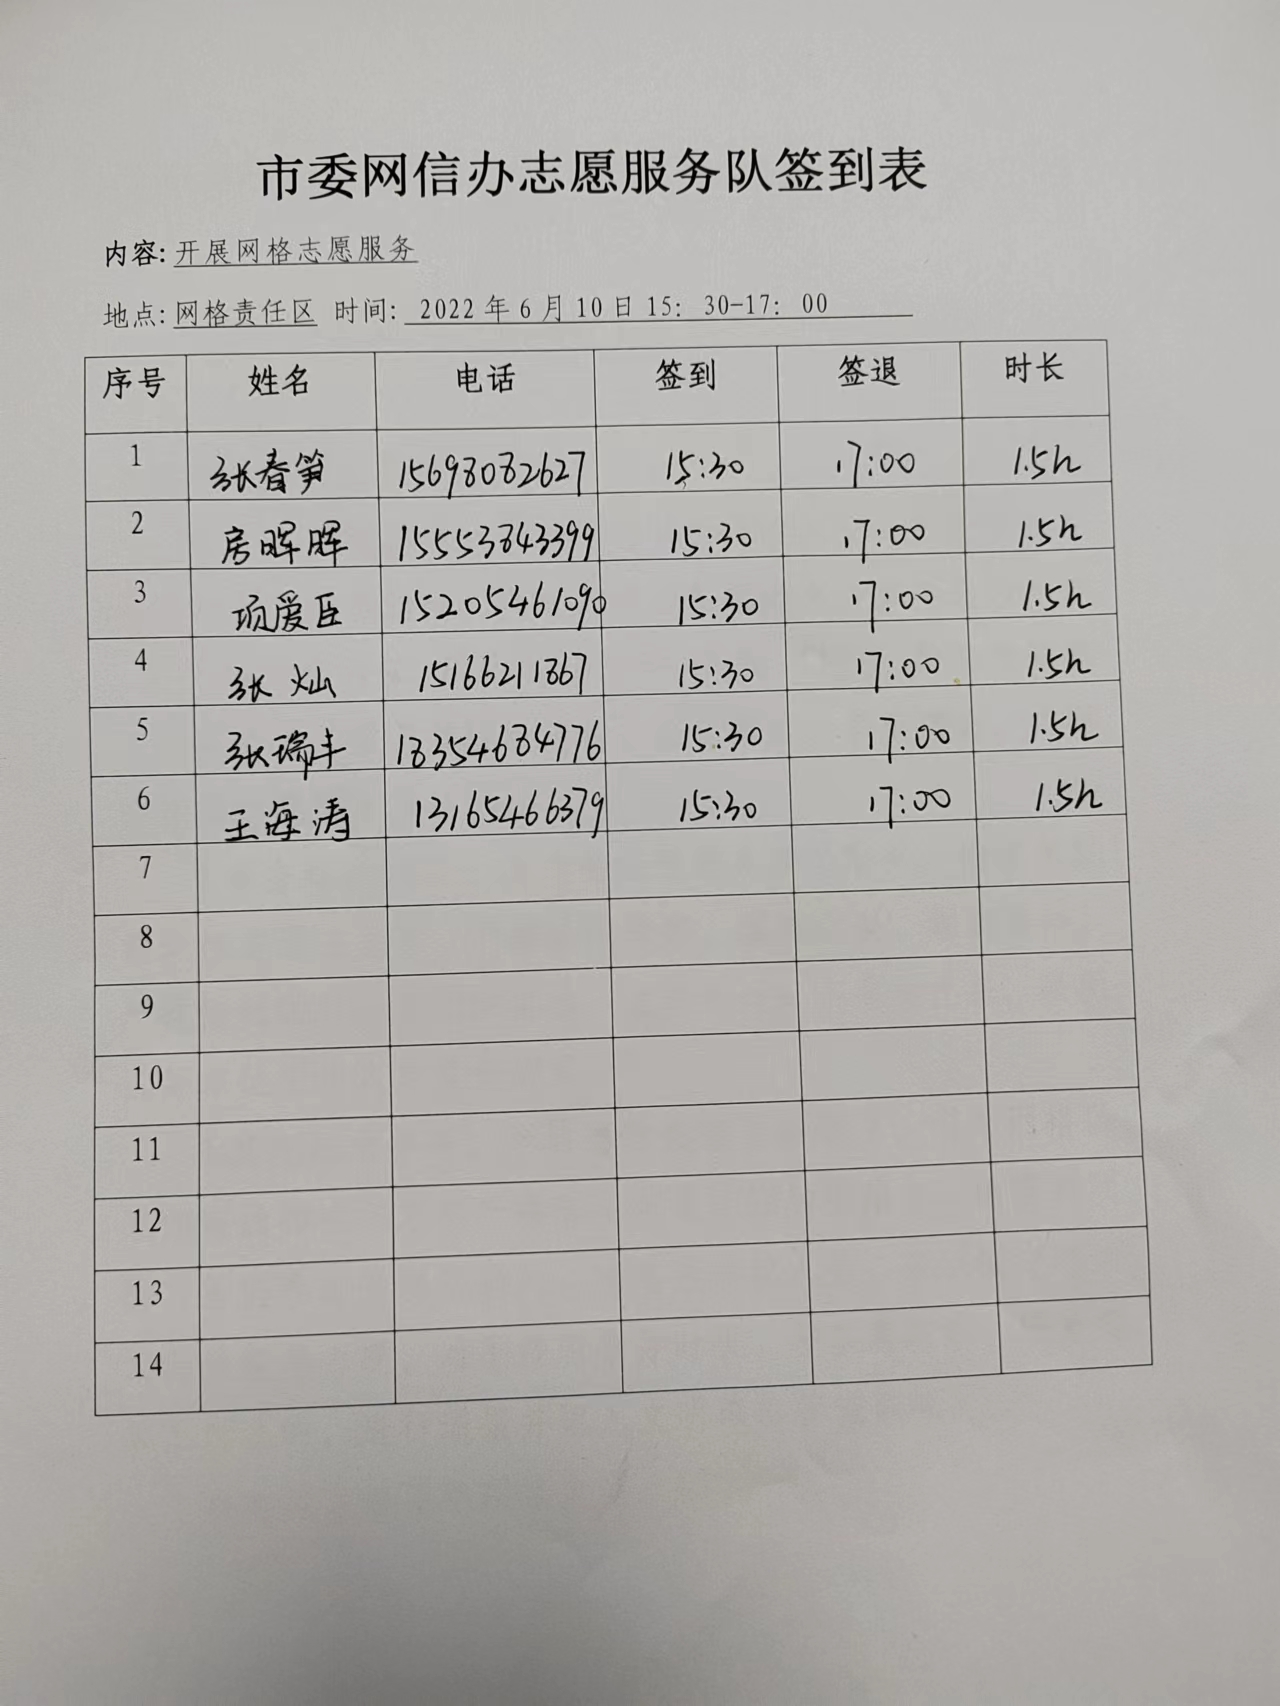 市委网信办志愿服务队签到表
内容: 开展网格志愿服务
地点: 网格责任区 时间: 2022年6月10日15：30-17：00
序号 姓名 电话 签到 签退 时长
1 张春笋 15698082627 15:30 17:00 1.5h
2 房晖晖 15553843399 15:30 17:00 1.5h
3 项爱臣 15205461090 15:30 17:00 1.5h
4 张灿 15166211867 15:30 17:00 1.5h
5 张瑞丰 18354684776 15:30 17:00 1.5h
6 王海涛 13165466379 15:30 17:00 1.5h
7
8
9
10
11
12
13
14